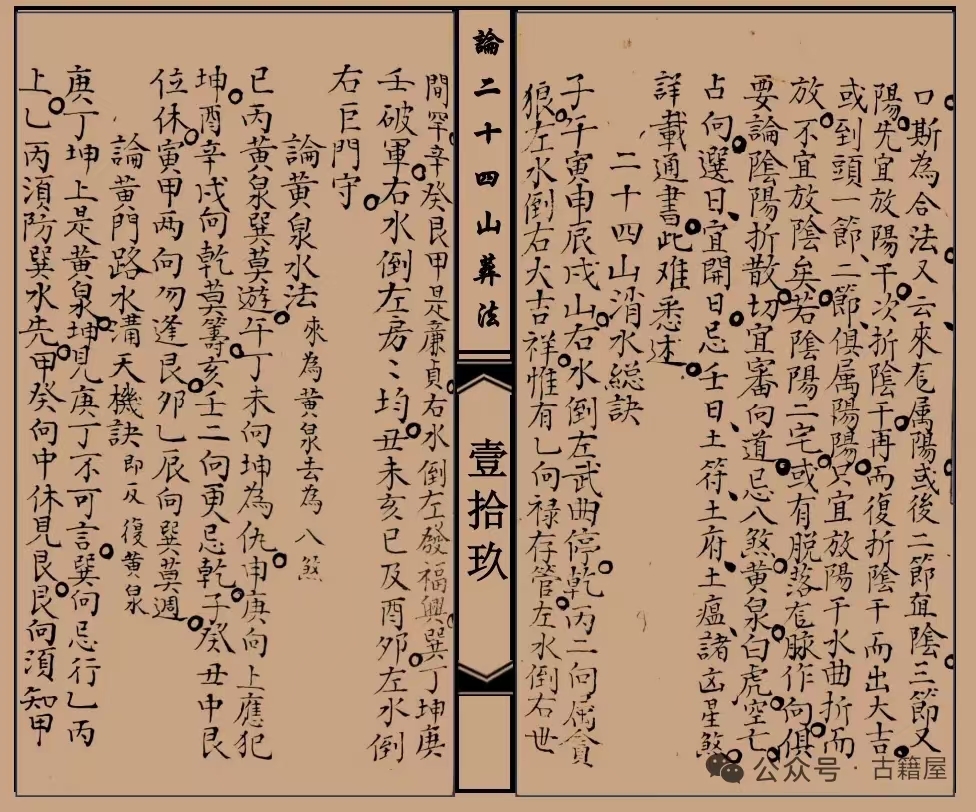 口斯為合法又云來尨属陽或後二節亙陰三節又
陽先宜放陽干次折陰干再而復折陰干而出大吉
或到頭一節二節俱属陽陽只宜放陽干水曲折而
放不宜放陰矣若陰陽二宅或有脫落尨脉作向俱
要論陰陽折散切宜審向道忌八煞黃泉白虎空亡
占向選日宜開日忌壬日土符土府土瘟諸凶星煞
詳載通書此难悉述
二十四山消水総訣
子午寅申辰戌山右水倒左武曲停乾丙二向属貪
狼左水倒右大吉祥惟有乙向禄存管左水倒右世
論二十四山葬法
壹拾玖
間罕辛癸艮甲是廉貞右水倒左發福興巽丁坤庚
壬破軍右水倒左房〻均丑未亥巳及酉夘左水倒
右巨門守
論黃泉水法 來為黃泉去為八煞
巳丙黃泉巽莫遊午丁未向坤為仇申庚向上應犯
坤酉辛戌向乾莫籌亥壬二向更忌乾子癸丑中艮
位休寅甲两向勿逢艮夘乙辰向巽莫週
論黃門路水溝天機訣 即反復黃泉
庚丁坤上是黃泉坤見庚丁不可言巽向忌行乙丙
上乙丙須防巽水先甲癸向中休見艮艮向須知甲
公众号·古籍屋